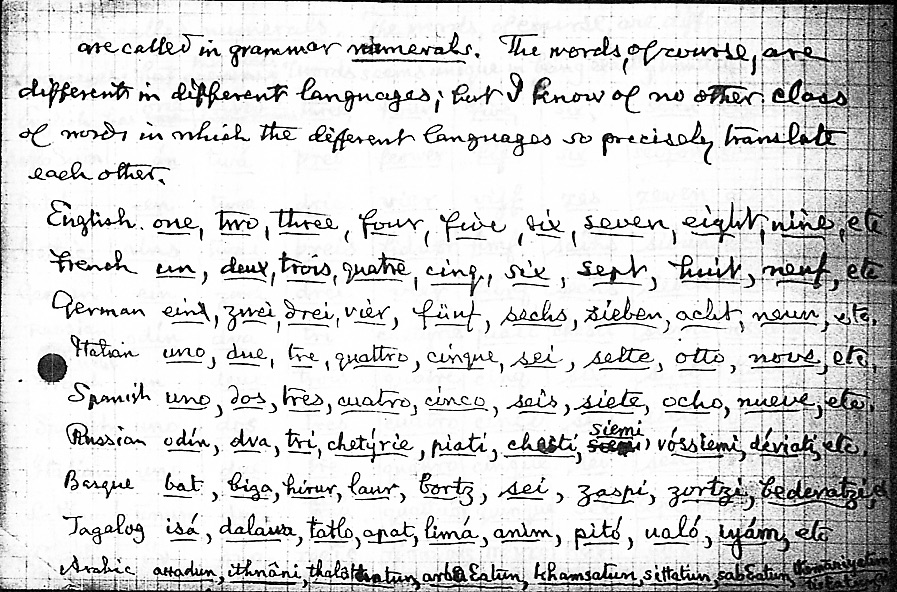 are called in grammar numerals. The words, of course, are
different in different languages; but I know of no other class
of words in which the different languages so precisely translate
each other.
English. one, two, three, four, five, six, seven, eight, nine, etc
French un, deux, trois, quatre, cinq, six, sept, huit, neuf, etc
German ein, zwei, drei, vier, fünf, sechs, sieben, acht, neun, etc.
Italian uno, due, tre, quattro, cinque, sei, sette, otto, nove, etc.
Spanish uno, dos, tres, cuatro, cinco, seis, siete, ocho, nueve, etc.
Russian odín, dva, tri, chetýrie, piati, chesti, siemi, vóssiemi, déviati, etc.
Basque bat, biga, hirur, laur, bortz, sei, zaspi, zortzi, bederatzi,
Tagalog isá, dalawa, tatlo, apat, limá, anim, pitó, ualó, iyám, etc
Arabic ithnâni, khamsatun, sittatun,